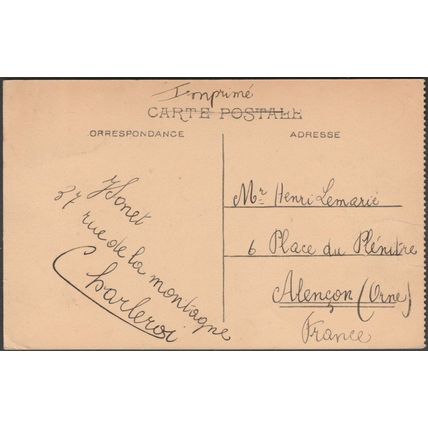 Imprimé
CARTE POSTALE
ORRESPONDANCE
ADRESSE
37 rue de la montagne
Charleroi
Mr Henri Lemarié
6 Place du Plénitre
Alençon (Orne)
France